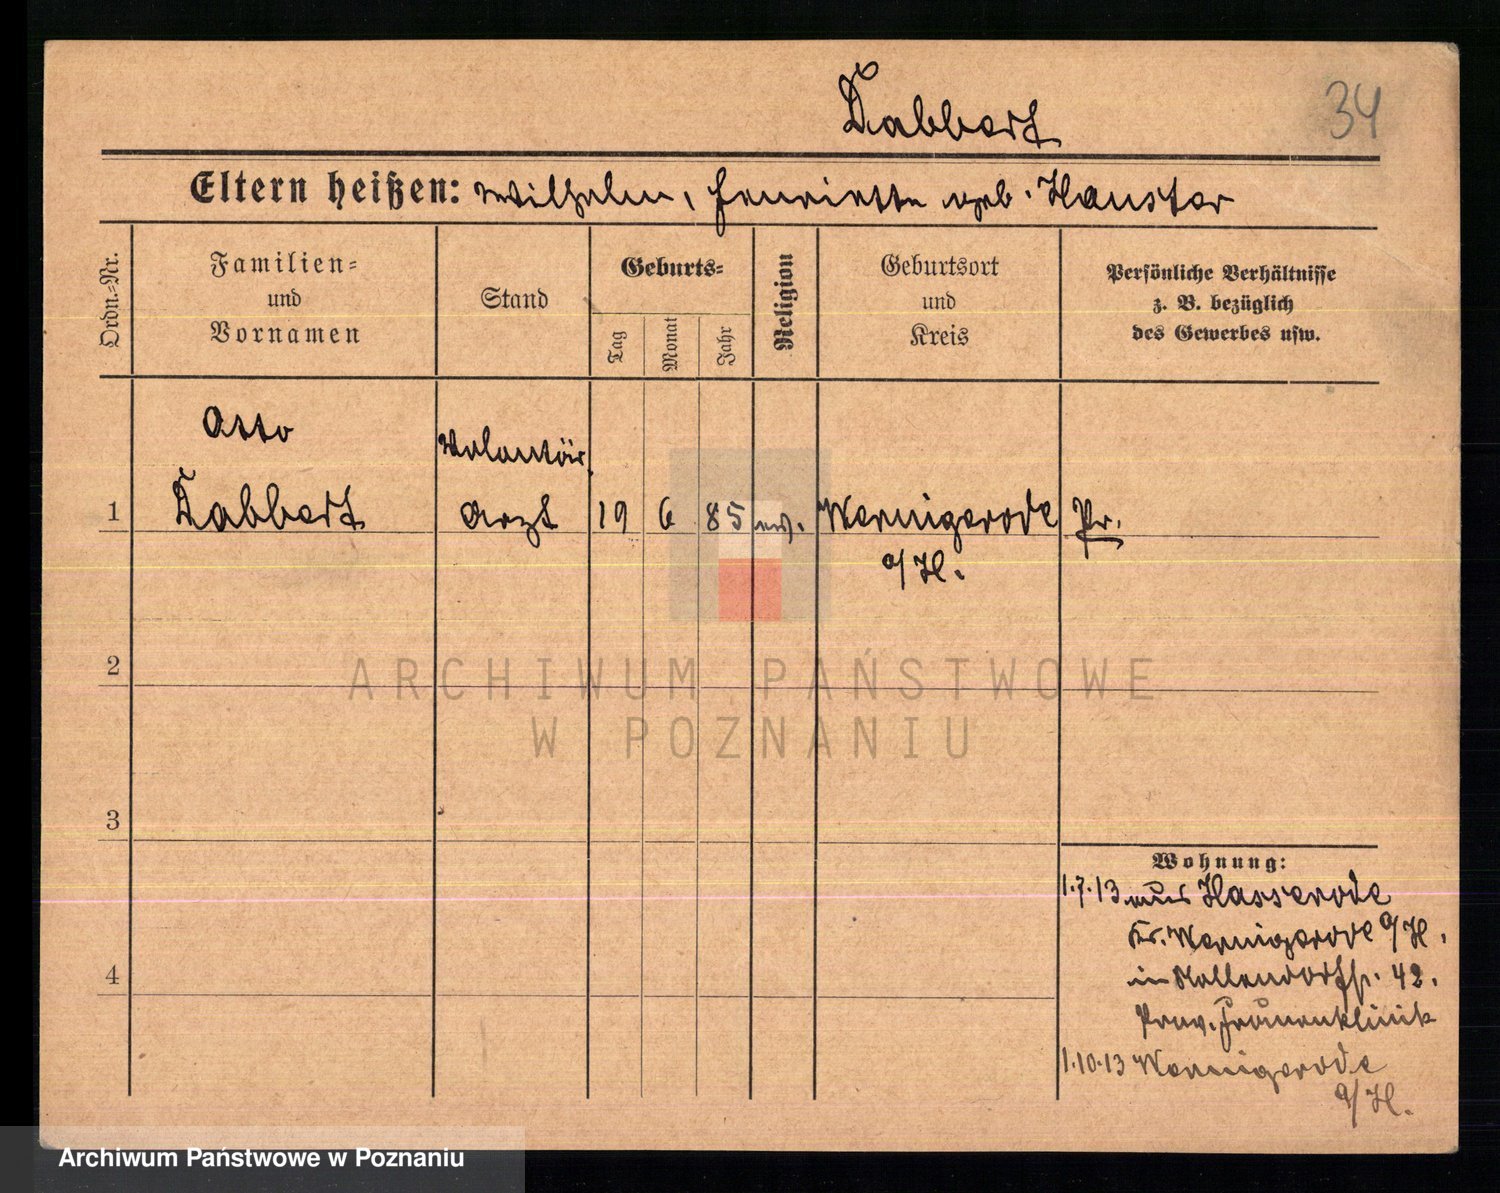 Dabbert
34
Eltern heißen: Wilhelm, Henriette geb. Hauster
Ordn.=Nr.
Familien=
und
Vornamen
Stand
Geburts=
Tag
Monat
Jahr
Religion
Geburtsort
und
Kreis
Persönliche Verhältnisse
z. B. bezüglich
des Gewerbes usw.
Otto
Volontär
1 Dabbert Arzt 19 6 85 ev. Wernigerode Pr.
a/H.
2
ARCHIWUM PAŃSTWOWE
W POZNANIU
3
Wohnung:
1.7.13 aus Hasserode
Kr. Wernigerode a/H.
4
in Nollendorfstr. 42.
Prov. Frauenklinik
1.10.13 Wernigerode
a/H.
Archiwum Państwowe w Poznaniu